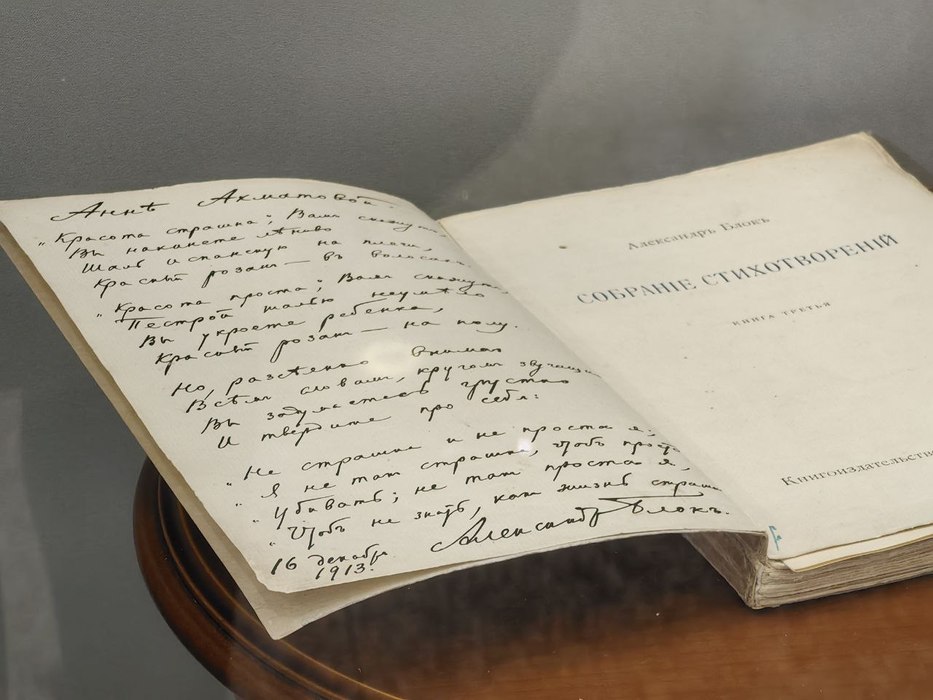 Аннѣ Ахматовой.
"Красота страшна", Вамъ скажутъ
Вы накинете лѣниво
Шаль испанскую на плечи,
Красный розанъ — въ волосахъ
"Красота проста", Вамъ скажутъ
Пестрой шалью неумѣло
Вы укроете ребенка,
Красный розанъ — на полу.
Но, разсѣянно внимая
Всѣмъ словамъ, кругомъ звучащимъ
Вы задумаетесь грустно
И твердите про себя:
"Не страшна и не проста я;
"Я не такъ страшна, чтобъ просто
"Убивать; не такъ проста я,
"Чтобъ не знать, какъ жизнь страшна
Александръ Блокъ.
16 декабря
1913.
Александръ Блокъ
СОБРАНІЕ СТИХОТВОРЕНІЙ
КНИГА ТРЕТЬЯ
Книгоиздательство